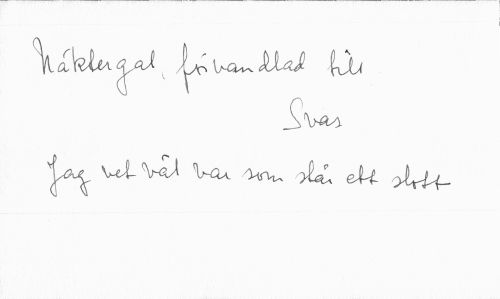 Näktergal, förvandlad till
Svar
Jag vet väl var som står ett slott